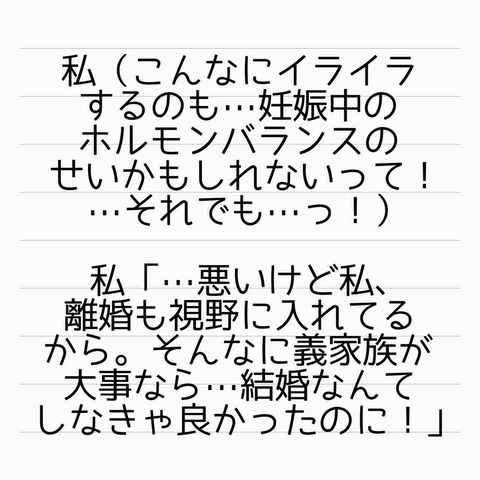 私（こんなにイライラ
するのも…妊娠中の
ホルモンバランスの
せいかもしれないって！
…それでも…っ！）
私「…悪いけど私、
離婚も視野に入れてる
から。そんなに義家族が
大事なら…結婚なんて
しなきゃ良かったのに！」